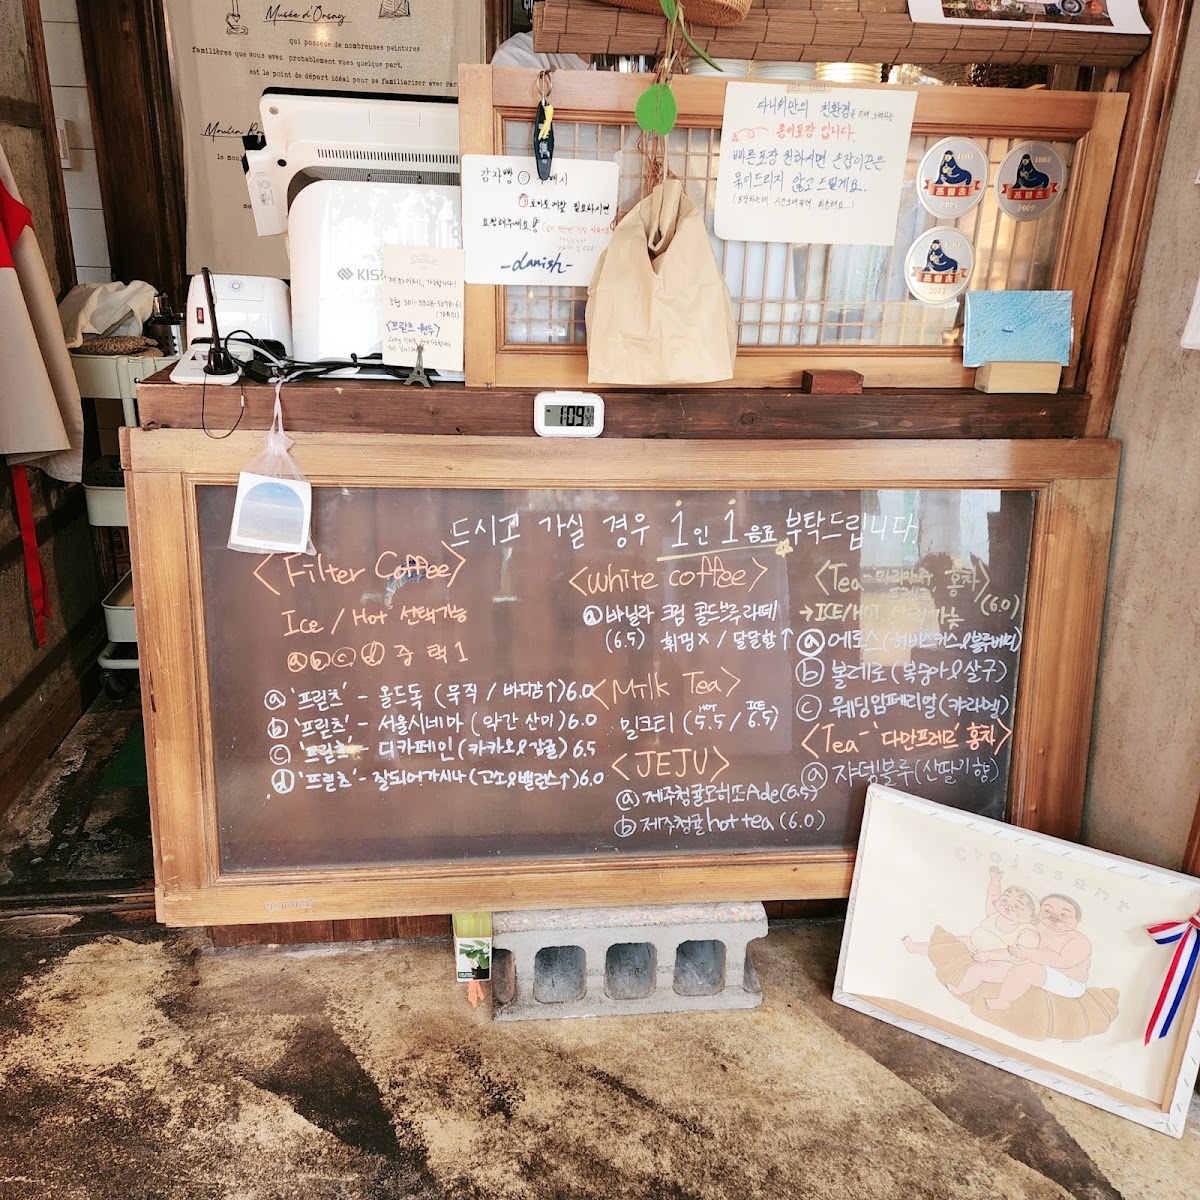 Musée d'Orsay
qui possède de nombreuses peintures
familières que vous avez probablement vues quelque part,
est le point de départ idéal pour se familiariser avec Par
Moulin Ro
le moul
KIS
감자빵
요청해주세요!
-danish-
<프릳츠 원두>
다니쉬만의 친환경
종이포장 입니다.
빠른포장 원하시면 손잡이끈은
묶어드리지 않고 드릴게요.
1:09
드시고 가실 경우 1인 1음료 부탁드립니다.
<Filter Coffee>
Ice / Hot 선택가능
ⓐⓑⓒⓓ 중 택 1
ⓐ '프릳츠' - 올드독 (묵직 / 바디감↑) 6.0
ⓑ '프릳츠' - 서울시네마 (약간 산미) 6.0
ⓒ '프릳츠' - 디카페인 (카카오&감귤) 6.5
ⓓ '프릳츠' - 잘되어가시나 (고소&밸런스↑) 6.0
<White coffee>
ⓐ 바닐라 크림 콜드브루 라떼
(6.5) 휘핑X / 달달함↑
<Milk Tea>
밀크티 (HOT 5.5 / ICE 6.5)
<JEJU>
ⓐ 제주청귤모히또Ade (6.5)
ⓑ 제주청귤 hot tea (6.0)
<Tea - 마리아쥬 프레르, 홍차>
(6.0)
→ICE/HOT 선택가능
ⓐ 에로스 (히비스커스&블루베리)
ⓑ 볼레로 (복숭아&살구)
ⓒ 웨딩임페리얼 (캬라멜)
<Tea - '다만프레르' 홍차>
ⓐ 쟈뎅블루 (산딸기향)
croissant